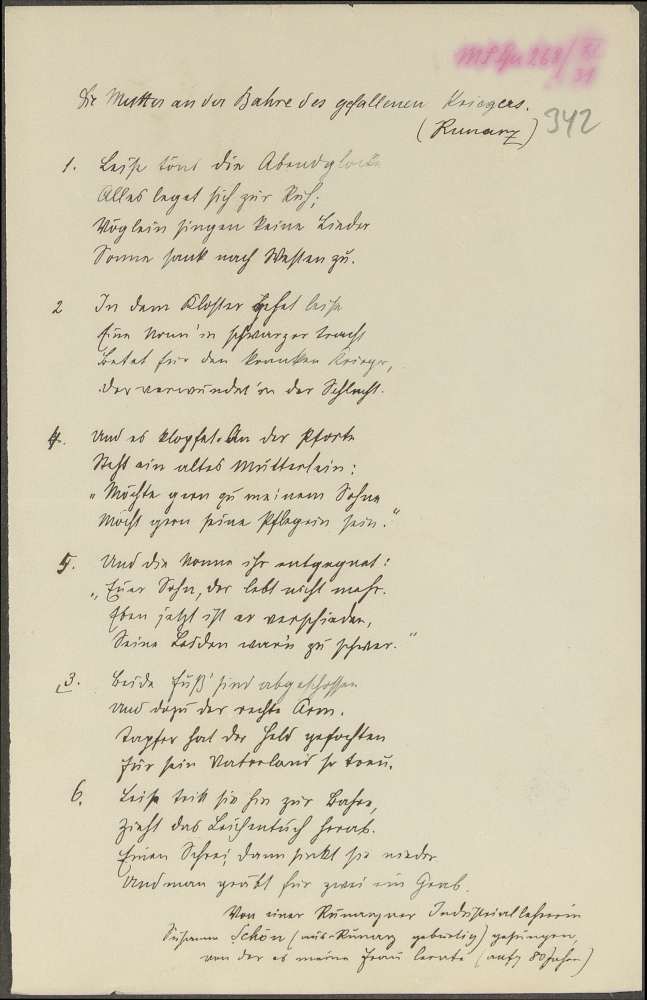 Die Mutter an der Bahre des gefallenen Kriegers.
(Runarz) 342
1. Leise tönt die Abendglocke
Alles leget sich zur Ruh;
Vöglein singen keine Lieder
Sonne sank nach Westen zu.
2 In dem Kloster gehet leise
Eine Nonn' in schwarzer Tracht
Betet für den kranken Krieger,
Der verwundet in der Schlacht.
4. Und es klopfet. An der Pforte
Steht ein altes Mütterlein:
"Möchte gern zu meinem Sohne
Möcht gern seine Pflegrin sein."
5. Und die Nonne ihr entgegnet:
"Euer Sohn, der lebt nicht mehr.
Eben jetzt ist er verschieden,
Seine Leiden war'n zu schwer."
3. Beide Füß' sind abgeschossen
Und dazu der rechte Arm.
Tapfer hat der Held gefochten
Für sein Vaterland so treu.
6. Leise tritt sie hin zur Bahre,
Zieht das Leichentuch herab.
Einen Schrei, dann sinkt sie nieder
Und man gräbt für zwei ein Grab.
Von einer Runarzner Industriallehrerin
Susanne Schön (aus Runarz gebürtig) gesungen,
von der es meine Frau lernte ( 80 Jahre)